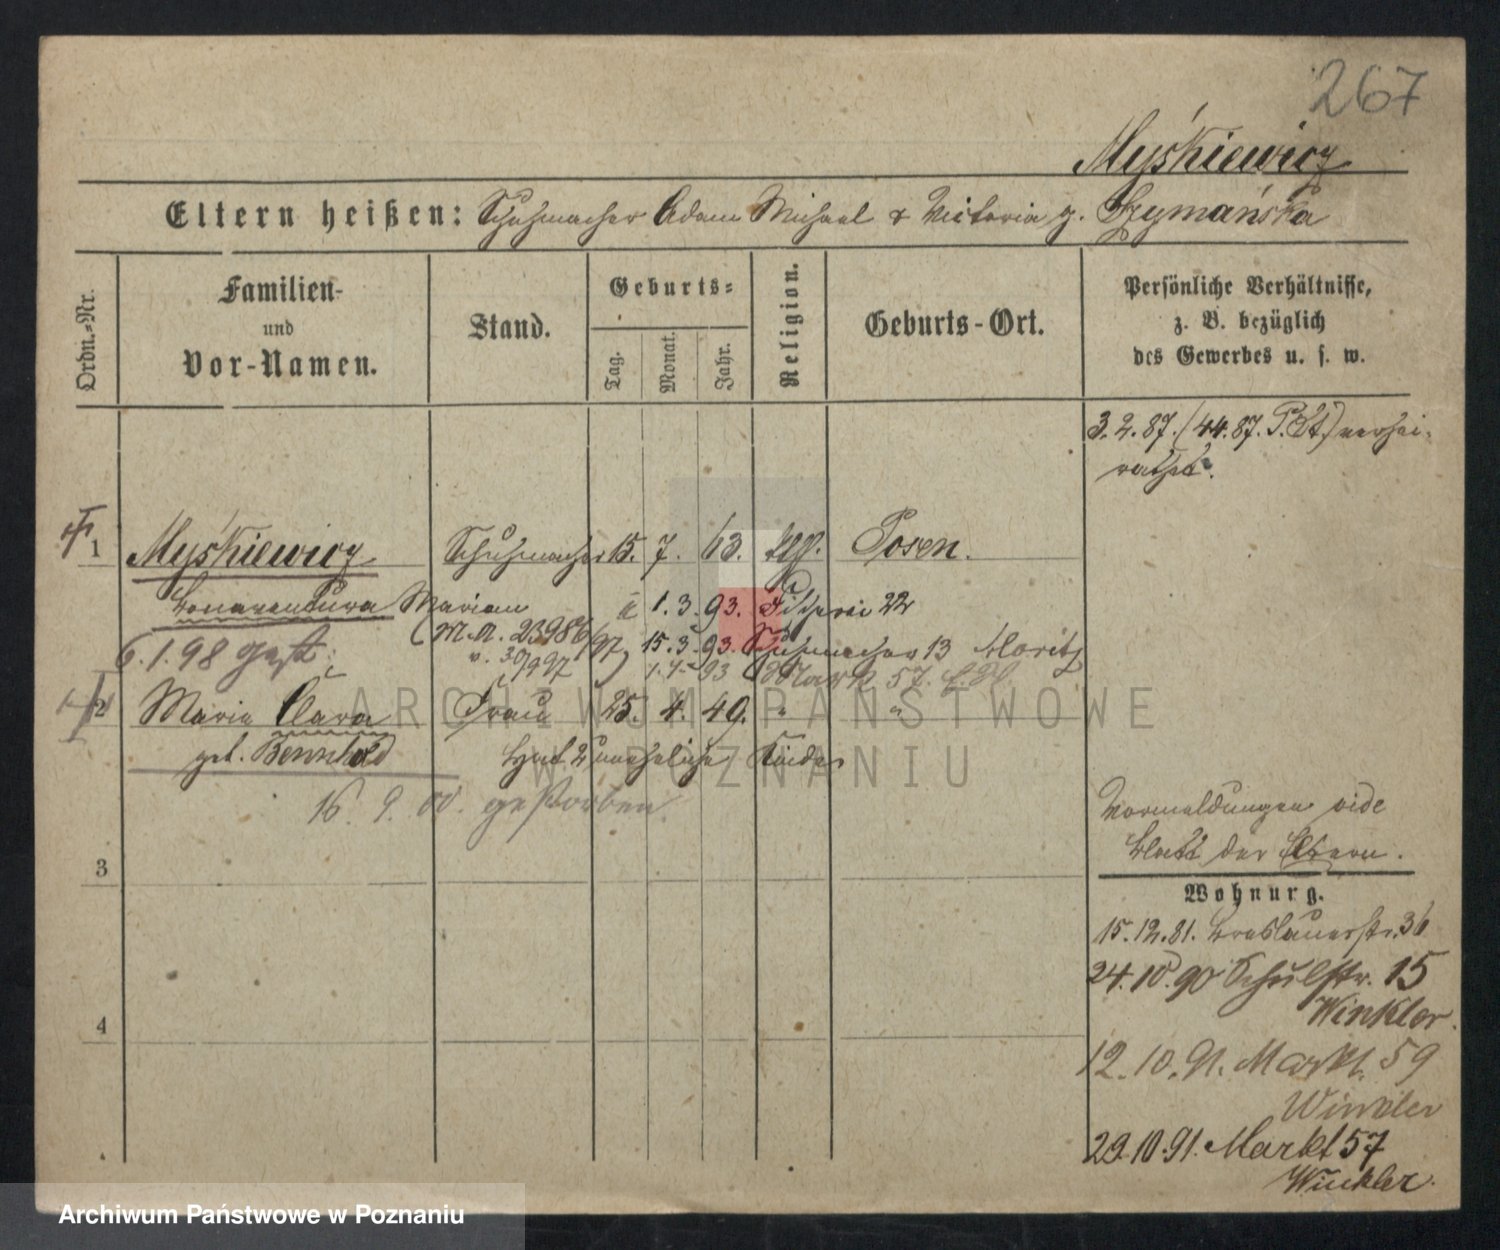 267
Myśkiewicz
Eltern heißen: Schuhmacher Adam Michael & Victoria g. Szymańska
Ordn.-Nr.
Familien-
und
Vor-Namen.
Stand.
Geburts-
Tag.
Monat.
Jahr.
Religion.
Geburts-Ort.
Persönliche Verhältnisse,
z. B. bezüglich
des Gewerbes u. s. w.
3. 2. 87. (44. 87. P. St.) verhei-
rathet.
1 Myśkiewicz Schuhmacher 15. 7. 63. kth. Posen.
Bonaventura Marian 1. 3. 93. Fischerei 22
(M.A. 23986/97) 15. 3. 93. Schuhmacher 13 Moritz
6. 1. 98 gest. 1. 7. 93 Markt 57.
2 Maria Clara Frau 25. 4. 49. " "
geb. Bernhold hat 2 uneheliche Kinder
16. 9. 00. gestorben.
Vormeldungen vide
Blatt der Eltern.
3
Wohnurg.
15. 12. 81. Breslauerstr. 36
24. 10. 90 Schulstr. 15
Winkler.
4
12. 10. 91. Markt. 59
Winkler
29. 10. 91. Markt 57
Winkler.
ARCHIWUM PAŃSTWOWE
W POZNANIU
Archiwum Państwowe w Poznaniu